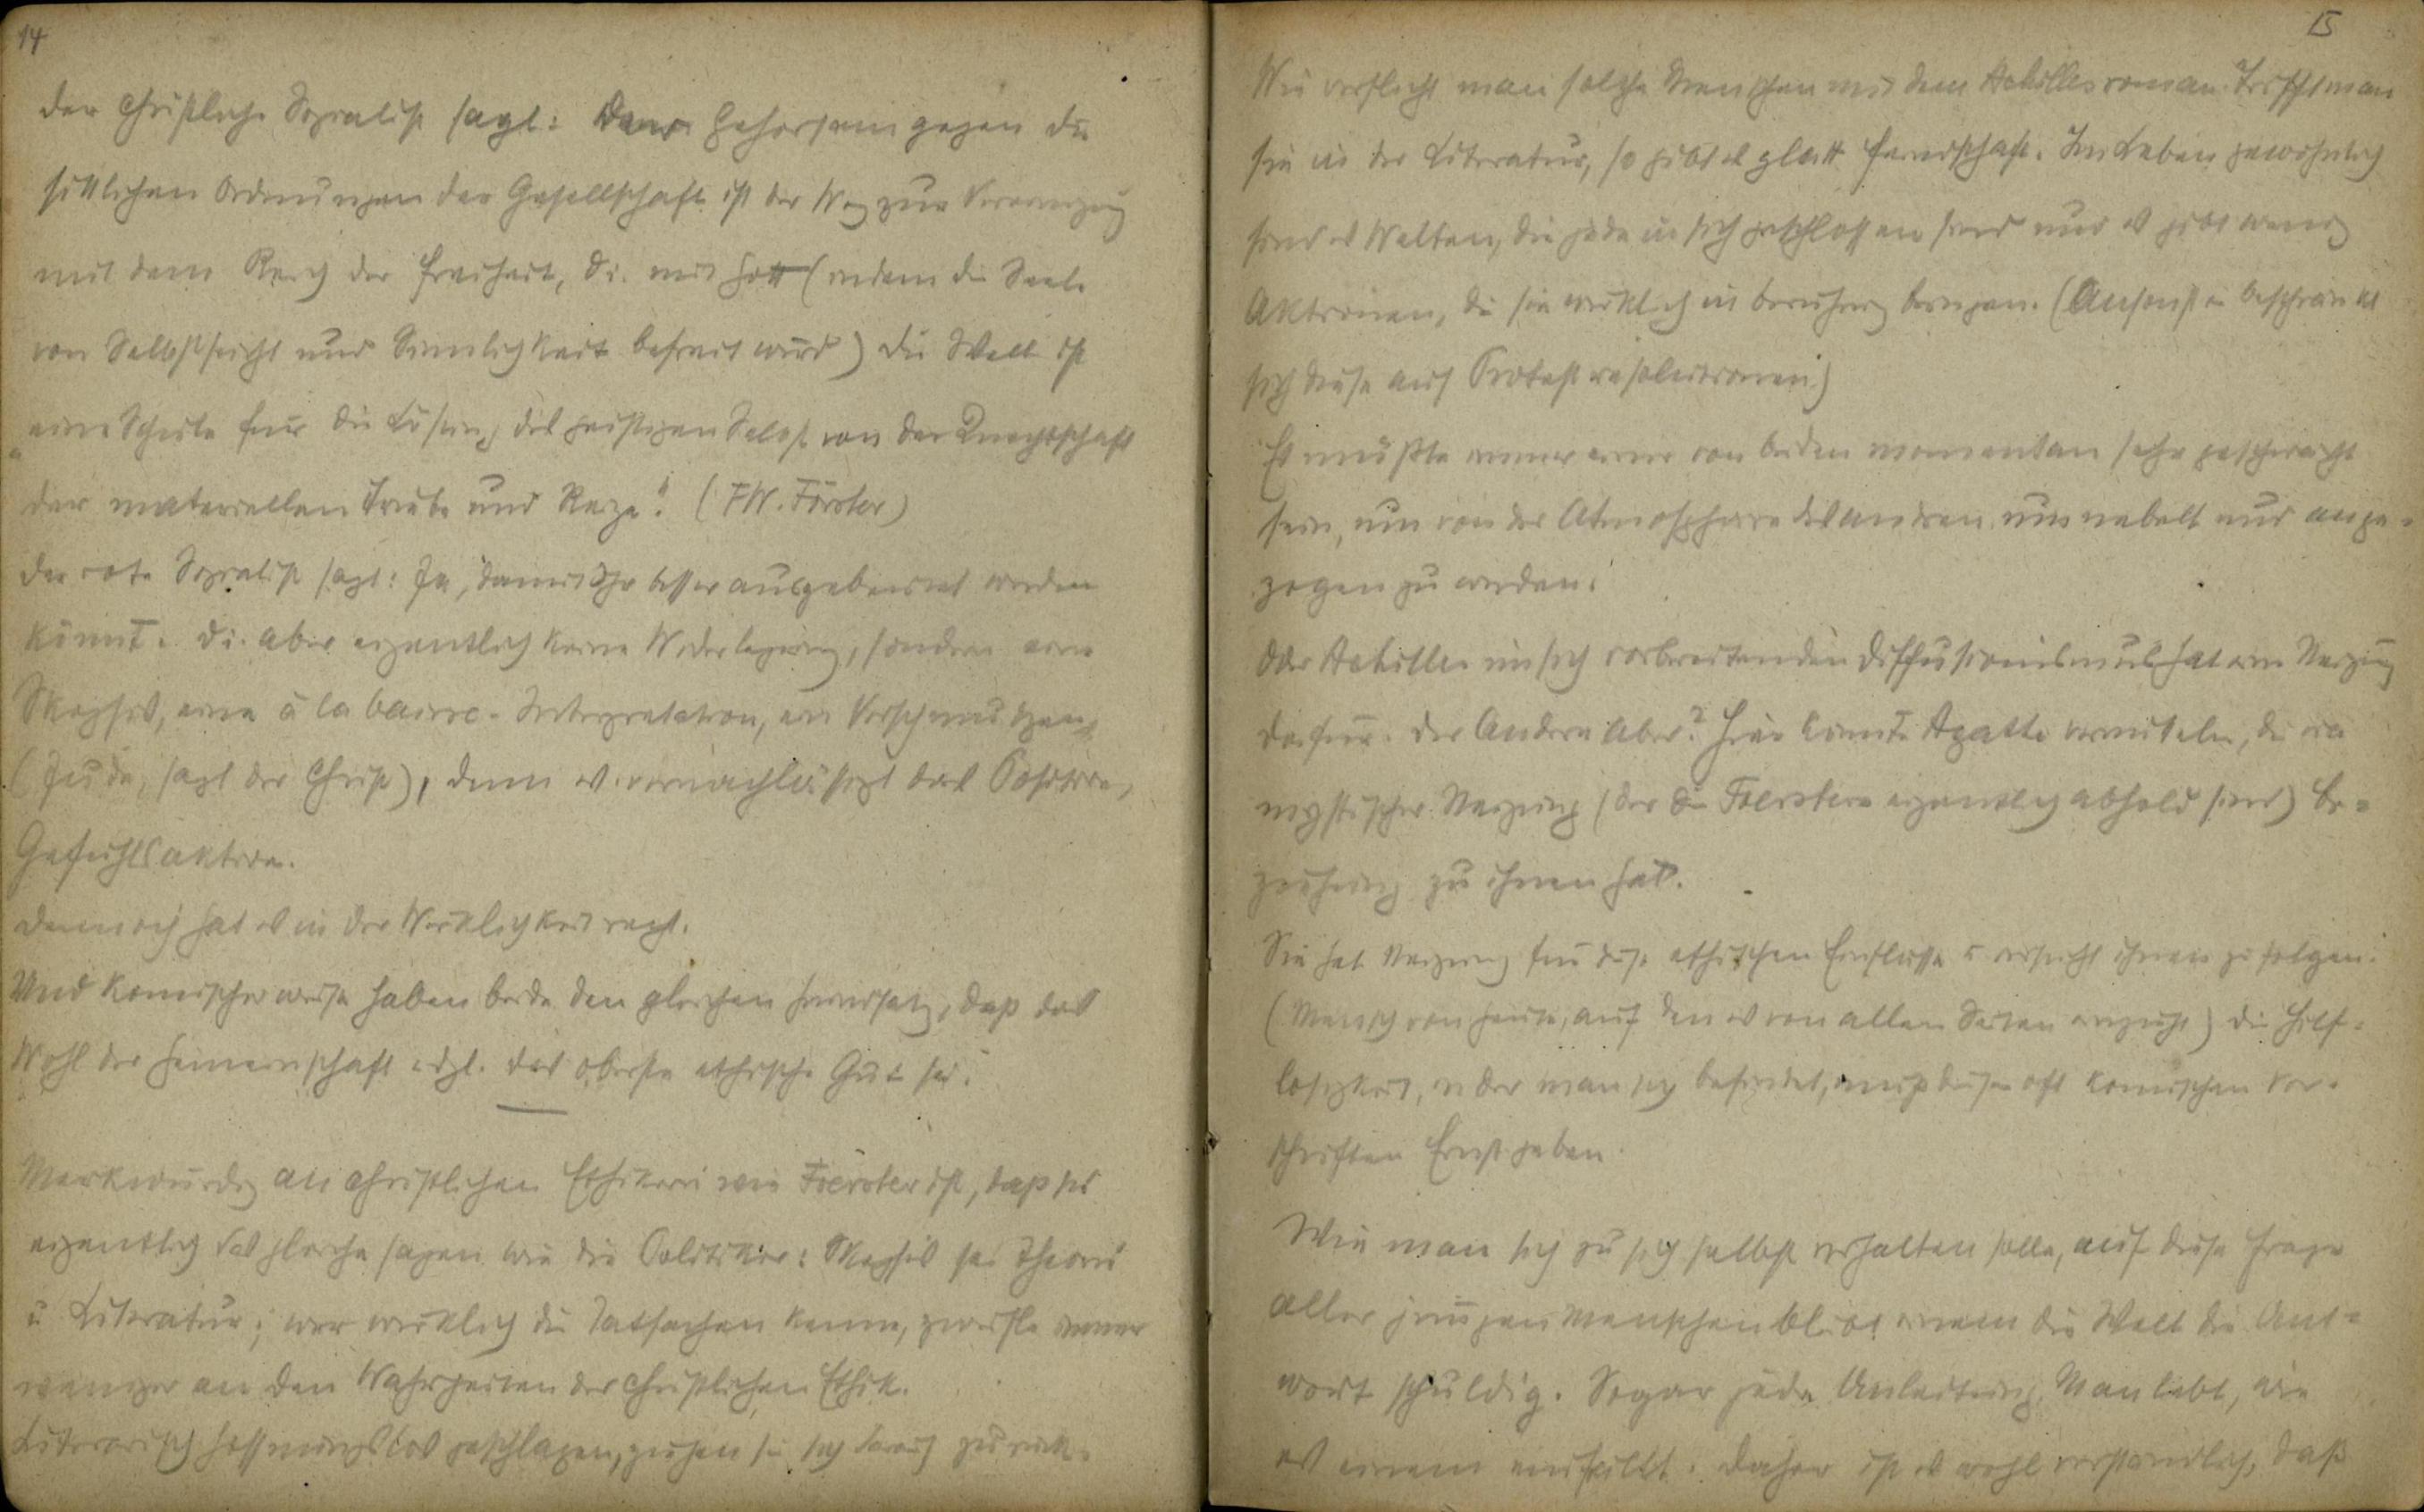 14
Der christliche Sozialist sagt: Der Gehorsam gegen die
sittlichen Ordnungen der Gesellschaft ist der Weg zur Vereinigung
mit dem Reich der Freiheit, di. mit Gott (indem die Seele
von Selbstsucht und Sinnlichkeit befreit wird) Die Welt ist
„eine Schule für die Lösung des geistigen Selbst von der Knechtschaft
der materiellen Triebe und Reize". (FW. Förster)
Der rote Sozialist sagt: Ja, damit Ihr besser ausgebeutet werden
könnt. Di. aber eigentlich keine Widerlegung, sondern eine
Skepsis, eine à la baisse-Interpretation, ein Verschmutzen
(Jude, sagt der Christ), denn es vernachlässigt das Positive,
Gefühlsaktive.
Dennoch hat es in der Wirklichkeit recht.
Und komischerweise haben beide den gleichen Grundsatz, daß das
Wohl der Gemeinschaft udgl. das oberste ethische Gut sei.
Merkwürdig an christlichen Ethikern wie Foerster ist, daß sie
eigentlich das gleiche sagen wie die Politiker: Skepsis sei Theorie
u Literatur; wer wirklich die Tatsachen kenne, zweifle immer
weniger an den Wahrheiten der christlichen Ethik.
Literarisch hoffnungslos geschlagen, ziehen sie sich darauf zurück.
15
Wie verflicht man solche Menschen mit dem Achillesroman. Trifft man
sie in der Literatur, so gibt es glatt Feindschaft. Im Leben gewöhnlich
sind es Welten, die jede in sich geschlossen sind und es gibt wenig
Aktionen, die sie wirklich in Berührung bringen. (Ansonsten beschränkt
sich diese auf Protestresolutionen)
Es müßte immer einer von beiden momentan sehr geschwächt
sein, um von der Atmosphäre des andren umnebelt und ange-
zogen zu werden.
Der Achilles im sich vorbereitenden Diffusionismus hat eine Neigung
dafür. Der Andere aber? Hier könnte Agathe vermitteln, die aus
mystischer Neigung (der die Foersters eigentlich abhold sind) Be-
ziehung zu ihnen hat.
Sie hat Neigung für diese ethischen Einflüsse u versucht ihnen zu folgen.
(Mensch von heute, auf den es von allen Seiten eingeht) Die Hilf-
losigkeit, in der man sich befindet, muß diesen oft komischen Vor-
schriften Ernst geben.
Wie man sich zu sich selbst verhalten solle, auf diese Frage
aller jungen Menschen bleibt einem die Welt die Ant-
wort schuldig. Sogar jede Anleitung. Man lebt, wie
es einem einfällt. Daher ist es wohl verständlich, daß